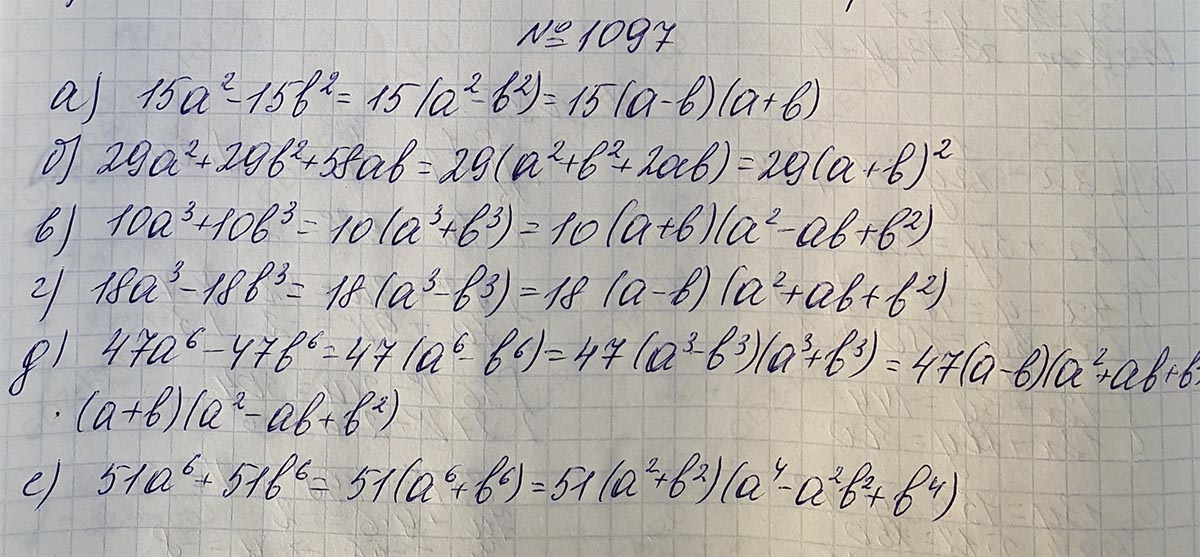 № 1097
а) 15a² - 15b² = 15(a² - b²) = 15(a - b)(a + b)
б) 29a² + 29b² + 58ab = 29(a² + b² + 2ab) = 29(a + b)²
в) 10a³ + 10b³ = 10(a³ + b³) = 10(a + b)(a² - ab + b²)
г) 18a³ - 18b³ = 18(a³ - b³) = 18(a - b)(a² + ab + b²)
д) 47a⁶ - 47b⁶ = 47(a⁶ - b⁶) = 47(a³ - b³)(a³ + b³) = 47(a - b)(a² + ab + b
· (a + b)(a² - ab + b²)
е) 51a⁶ + 51b⁶ = 51(a⁶ + b⁶) = 51(a² + b²)(a⁴ - a²b² + b⁴)